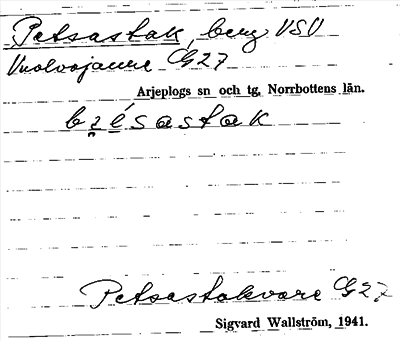 Petsastak, berg VSV
Vuolvojaure G27
Arjeplogs sn och tg, Norrbottens län.
bẹésastak
Petsastakvare G27
Sigvard Wallström, 1941.